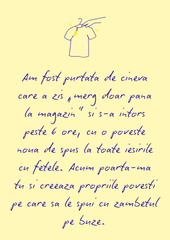 Am fost purtata de cineva
care a zis „merg doar pana
la magazin” si s-a intors
peste 6 ore, cu o poveste
noua de spus la toate iesirile
cu fetele. Acum poarta-ma
tu si creeaza propriile povesti
pe care sa le spui cu zambetul
pe buze.